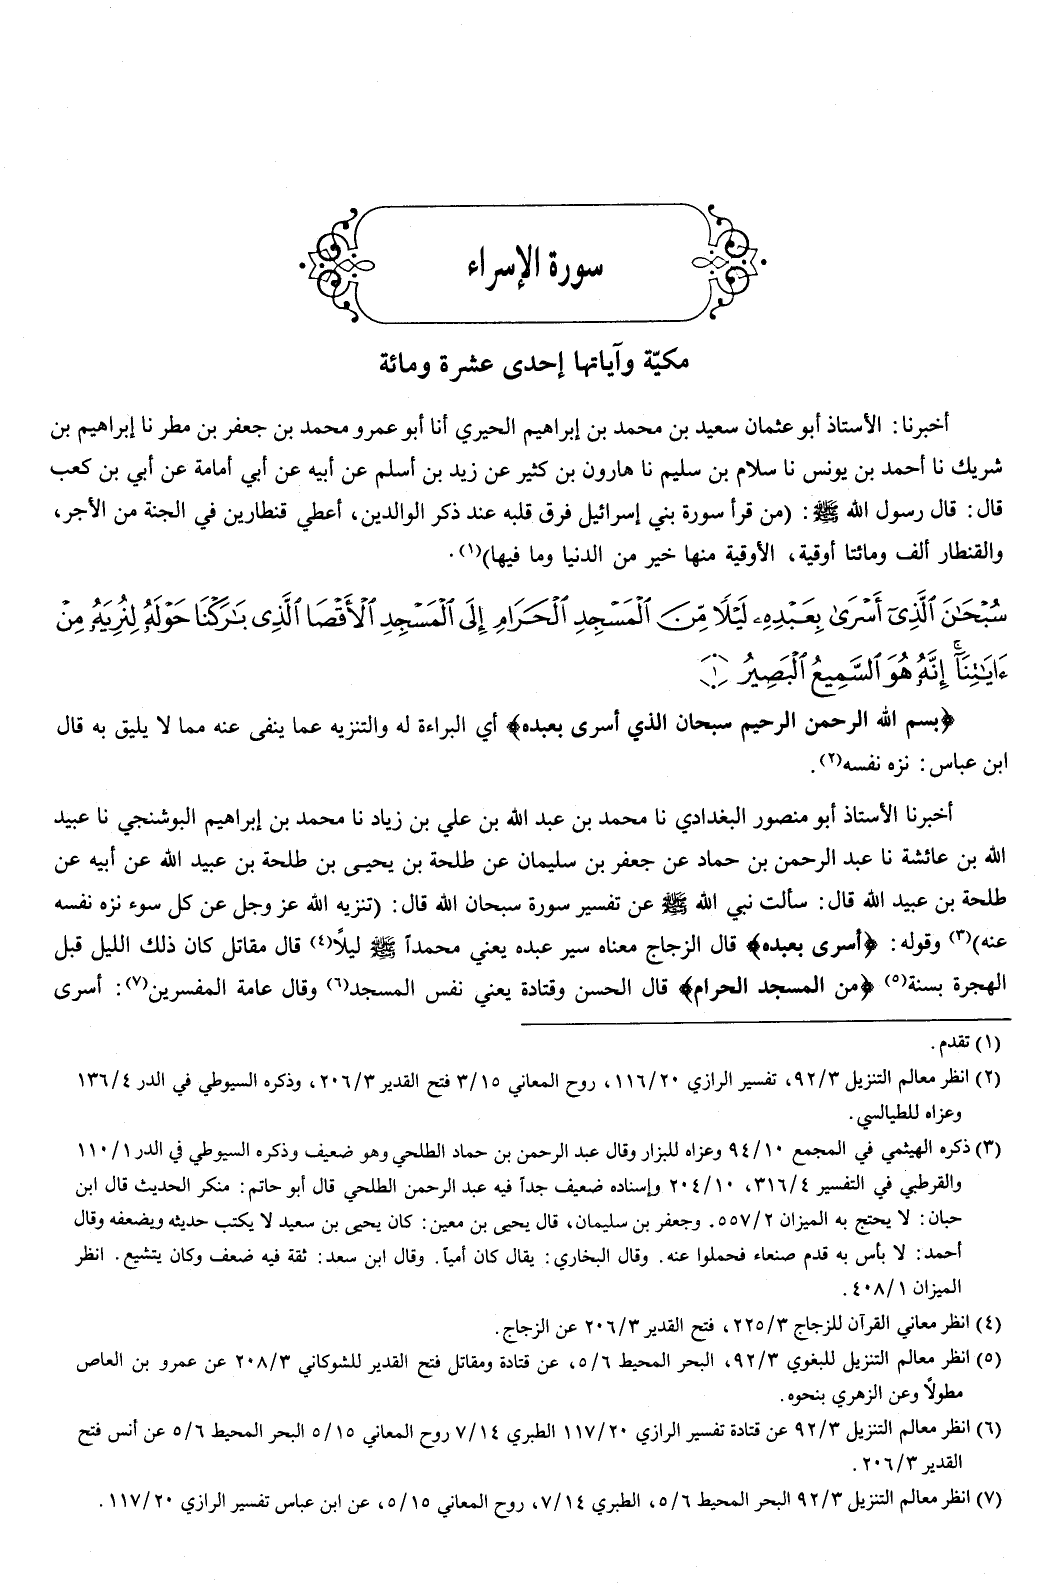 سورة الإسراء
مكيّة وآياتها إحدى عشرة ومائة
أخبرنا: الأستاذ أبو عثمان سعيد بن محمد بن إبراهيم الحيري أنا أبو عمرو محمد بن جعفر بن مطر نا إبراهيم بن
شريك نا أحمد بن يونس نا سلام بن سليم نا هارون بن كثير عن زيد بن أسلم عن أبيه عن أبي أمامة عن أبي بن كعب
قال: قال رسول الله ﷺ: (من قرأ سورة بني إسرائيل فرق قلبه عند ذكر الوالدين، أعطي قنطارين في الجنة من الأجر،
والقنطار ألف ومائتا أوقية، الأوقية منها خير من الدنيا وما فيها)(١).
سُبْحَٰنَ ٱلَّذِىٓ أَسْرَىٰ بِعَبْدِهِۦ لَيْلًا مِّنَ ٱلْمَسْجِدِ ٱلْحَرَامِ إِلَى ٱلْمَسْجِدِ ٱلْأَقْصَا ٱلَّذِى بَٰرَكْنَا حَوْلَهُۥ لِنُرِيَهُۥ مِنْ
ءَايَٰتِنَآ ۚ إِنَّهُۥ هُوَ ٱلسَّمِيعُ ٱلْبَصِيرُ ﴿١﴾
﴿بسم الله الرحمن الرحيم سبحان الذي أسرى بعبده﴾ أي البراءة له والتنزيه عما ينفى عنه مما لا يليق به قال
ابن عباس: نزه نفسه(٢).
أخبرنا الأستاذ أبو منصور البغدادي نا محمد بن عبد الله بن علي بن زياد نا محمد بن إبراهيم البوشنجي نا عبيد
الله بن عائشة نا عبد الرحمن بن حماد عن جعفر بن سليمان عن طلحة بن يحيى بن طلحة بن عبيد الله عن أبيه عن
طلحة بن عبيد الله قال: سألت نبي الله ﷺ عن تفسير سورة سبحان الله قال: (تنزيه الله عز وجل عن كل سوء نزه نفسه
عنه)(٣) وقوله: ﴿أسرى بعبده﴾ قال الزجاج معناه سير عبده يعني محمداً ﷺ ليلًا(٤) قال مقاتل كان ذلك الليل قبل
الهجرة بسنة(٥) ﴿من المسجد الحرام﴾ قال الحسن وقتادة يعني نفس المسجد(٦) وقال عامة المفسرين(٧): أسرى
(١) تقدم.
(٢) انظر معالم التنزيل ٩٢/٣، تفسير الرازي ١١٦/٢٠، روح المعاني ٣/١٥ فتح القدير ٢٠٦/٣، وذكره السيوطي في الدر ١٣٦/٤
وعزاه للطيالسي.
(٣) ذكره الهيثمي في المجمع ٩٤/١٠ وعزاه للبزار وقال عبد الرحمن بن حماد الطلحي وهو ضعيف وذكره السيوطي في الدر ١١٠/١
والقرطبي في التفسير ٣١٦/٤، ٢٠٤/١٠ وإسناده ضعيف جداً فيه عبد الرحمن الطلحي قال أبو حاتم: منكر الحديث قال ابن
حبان: لا يحتج به الميزان ٥٥٧/٢. وجعفر بن سليمان، قال يحيى بن معين: كان يحيى بن سعيد لا يكتب حديثه ويضعفه وقال
أحمد: لا بأس به قدم صنعاء فحملوا عنه. وقال البخاري: يقال كان أمياً. وقال ابن سعد: ثقة فيه ضعف وكان يتشيع. انظر
الميزان ٤٠٨/١.
(٤) انظر معاني القرآن للزجاج ٢٢٥/٣، فتح القدير ٢٠٦/٣ عن الزجاج.
(٥) انظر معالم التنزيل للبغوي ٩٢/٣، البحر المحيط ٥/٦، عن قتادة ومقاتل فتح القدير للشوكاني ٢٠٨/٣ عن عمرو بن العاص
مطولاً وعن الزهري بنحوه.
(٦) انظر معالم التنزيل ٩٢/٣ عن قتادة تفسير الرازي ١١٧/٢٠ الطبري ٧/١٤ روح المعاني ٥/١٥ البحر المحيط ٥/٦ عن أنس فتح
القدير ٢٠٦/٣.
(٧) انظر معالم التنزيل ٩٢/٣ البحر المحيط ٥/٦، الطبري ٧/١٤، روح المعاني ٥/١٥، عن ابن عباس تفسير الرازي ١١٧/٢٠.